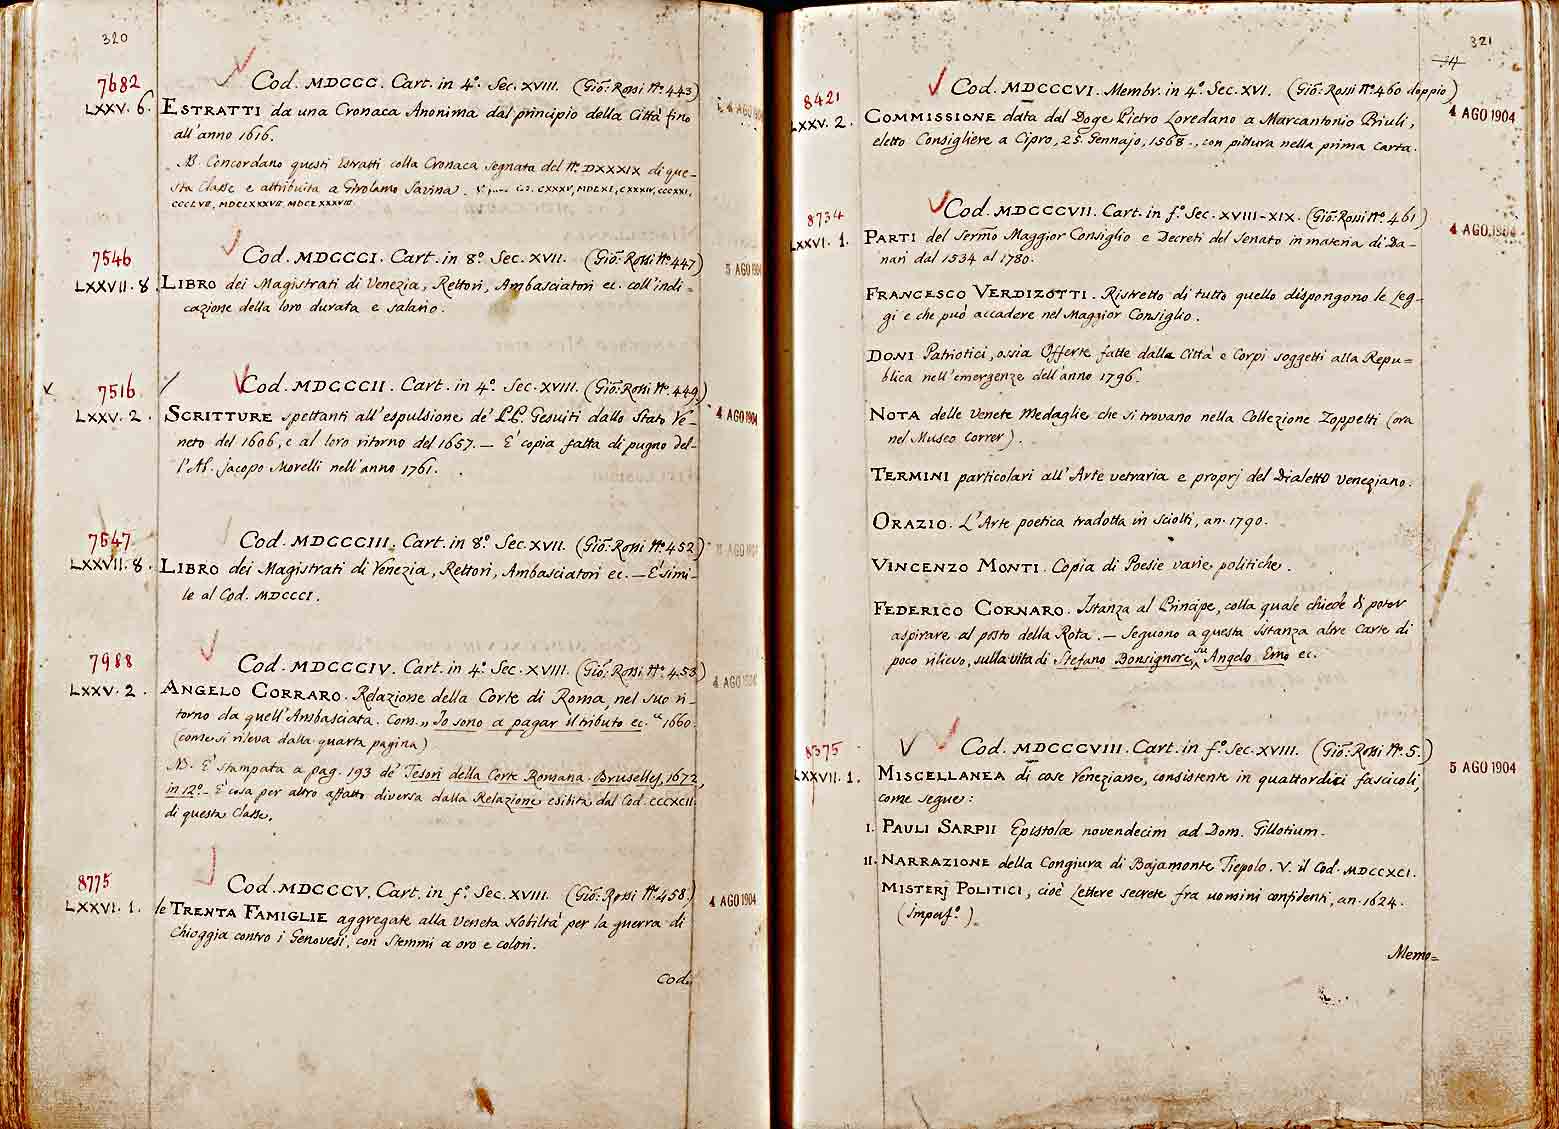 320
7682
Cod. MDCCC. Cart. in 4º. Sec. XVIII. (Gio: Rossi Nº. 443)
LXXV. 6. ESTRATTI da una Cronaca Anonima dal principio della Città fino
all'anno 1616.
NB. Concordano questi Estratti colla Cronaca segnata del Nº. DXXXIX di que-
sta Classe e attribuita a Girolamo Savina. CXXXV, MDLXI, CXXXIV, CCCXXI,
CCCLVII, MDCLXXXVII, MDCLXXXVIII
4 AGO 1904
7546
Cod. MDCCCI. Cart. in 8º. Sec. XVII. (Gio: Rossi Nº. 447)
5 AGO 1904
LXXVII. 8. LIBRO dei Magistrati di Venezia, Rettori, Ambasciatori ec. coll'indi=
cazione della loro durata e salario.
7516
Cod. MDCCCII. Cart. in 4º. Sec. XVIII. (Gio: Rossi Nº. 449)
4 AGO 1904
LXXV. 2. SCRITTURE spettanti all'espulsione de' PP. Gesuiti dallo Stato Ve-
neto del 1606, e al loro ritorno del 1657. — E' copia fatta di pugno del-
l'Ab. Jacopo Morelli nell'anno 1761.
7547
Cod. MDCCCIII. Cart. in 8º. Sec. XVII. (Gio: Rossi Nº. 452)
AGO 1904
LXXVII. 8. LIBRO dei Magistrati di Venezia, Rettori, Ambasciatori ec. — E' simi-
le al Cod. MDCCCI.
7988
Cod. MDCCCIV. Cart. in 4º. Sec. XVIII. (Gio: Rossi Nº. 453)
4 AGO 1904
LXXV. 2. ANGELO CORRARO. Relazione della Corte di Roma, nel suo ri-
torno da quell'Ambasciata. Com. „ Io sono a pagar il tributo ec. “ 1660.
(come si rileva dalla quarta pagina)
NB. E' stampata a pag. 193 de' Tesori della Corte Romana. Bruselles, 1672,
in 12º. — E' cosa per altro affatto diversa dalla Relazione esibita dal Cod. CCCXCII
di questa Classe.
8775
Cod. MDCCCV. Cart. in fº. Sec. XVIII. (Gio: Rossi Nº. 458)
4 AGO 1904
LXXVI. 1. le TRENTA FAMIGLIE aggregate alla Veneta Nobiltà per la guerra di
Chioggia contro i Genovesi, con Stemmi a oro e colori.
Cod.
321
8421
Cod. MDCCCVI. Membr. in 4º. Sec. XVI. (Gio: Rossi Nº. 460 doppio)
4 AGO 1904
LXXV. 2. COMMISSIONE data dal Doge Pietro Loredano a Marcantonio Priuli,
eletto Consigliere a Cipro, 25. Gennajo, 1568., con pittura nella prima carta.
8734
Cod. MDCCCVII. Cart. in fº. Sec. XVIII-XIX. (Gio: Rossi Nº. 461)
4 AGO. 1904
LXXVI. 1. PARTI del Sermo Maggior Consiglio e Decreti del Senato in materia di Da-
nari dal 1534 al 1780.
FRANCESCO VERDIZOTTI. Ristretto di tutto quello dispongono le Leg-
gi e che può accadere nel Maggior Consiglio.
DONI Patriotici, ossia Offerte fatte dalla Città e Corpi soggetti alla Repu=
blica nell'emergenze dell'anno 1796.
NOTA delle Venete Medaglie che si trovano nella Collezione Zoppetti (ora
nel Museo Correr).
TERMINI particolari all'Arte vetraria e proprj del Dialetto veneziano.
ORAZIO. L'Arte poetica tradotta in Sciolti, an. 1790.
VINCENZO MONTI. Copia di Poesie varie politiche.
FEDERICO CORNARO. Istanza al Principe, colla quale chiede di poter
aspirare al posto della Rota. — Seguono a questa Istanza altre Carte di
poco rilievo, sulla vita di Stefano Bonsignore, su Angelo Emo ec.
8375
V Cod. MDCCCVIII. Cart. in fº. Sec. XVIII. (Gio: Rossi Nº. 5.)
5 AGO 1904
LXXVII. 1. MISCELLANEA di cose Veneziane, consistente in quattordici fascicoli,
come segue:
I. PAULI SARPII Epistolæ novendecim ad Dom. Gillotium.
II. NARRAZIONE della Congiura di Bajamonte Tiepolo. V. il Cod. MDCCXCI.
MISTERJ POLITICI, cioè Lettere secrete fra uomini confidenti, an. 1624.
(imperf.º)
Memo=